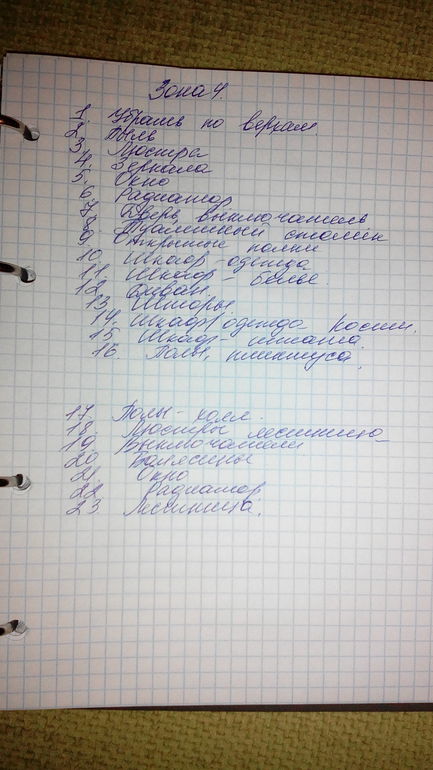 Зона 4.
1. Убрать по верхам
2. Пыль
3. Люстра
4. Зеркала
5. Окно
6. Радиатор
7. Дверь, выключатель
8. Туалетный столик
9. Открытые полки
10. Шкаф - одежда
11. Шкаф - белье.
12. Диван.
13. Шторы.
14. Шкаф одежда
15. Шкаф
16. Полы, плинтуса.
17. Полы - холл.
18. Люстры
19. Выключатели
20 Балясины
21 Окно
22 Радиатор
23 Лестница.